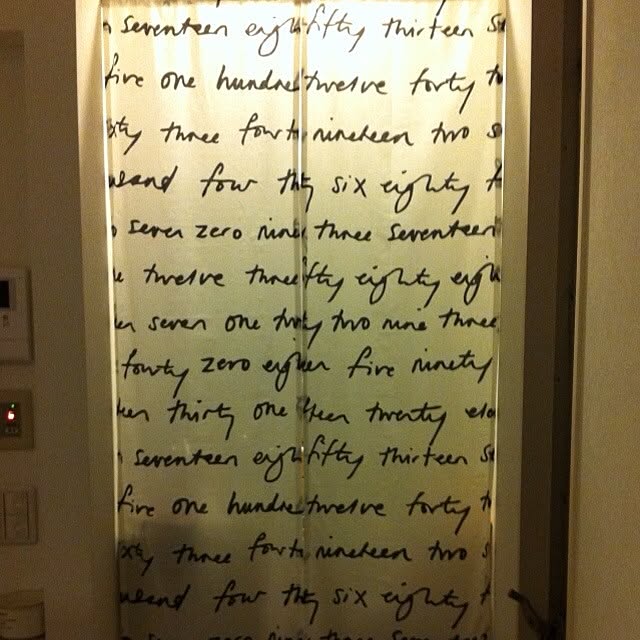 seventeen eigh fifty thirteen
five one hundred twelve forty
three fort nineteen two
four thi six eighty
seven zero nine three seventeen
twelve three fty eighty eigh
seven one two two nine three
fourty zero eigh five ninety
thirty one teen twenty ele
seventeen eigh fifty thirteen
five one hundred twelve forty
xty three fort nineteen two
four thi six eighty